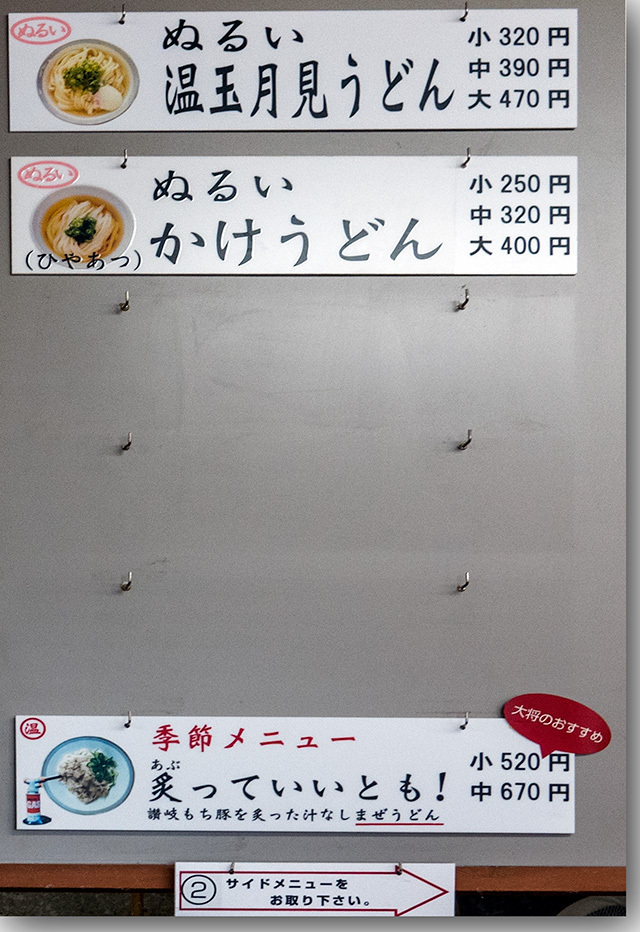 ぬるい
ぬるい
温玉月見うどん
小 320 円
中 390 円
大 470 円
ぬるい
ぬるい
かけうどん
(ひやあつ)
小 250 円
中 320 円
大 400 円
大将のおすすめ
温
季節メニュー
あぶ
炙っていいとも!
讃岐もち豚を炙った汁なしまぜうどん
小 520 円
中 670 円
GAS
② サイドメニューを
お取り下さい。